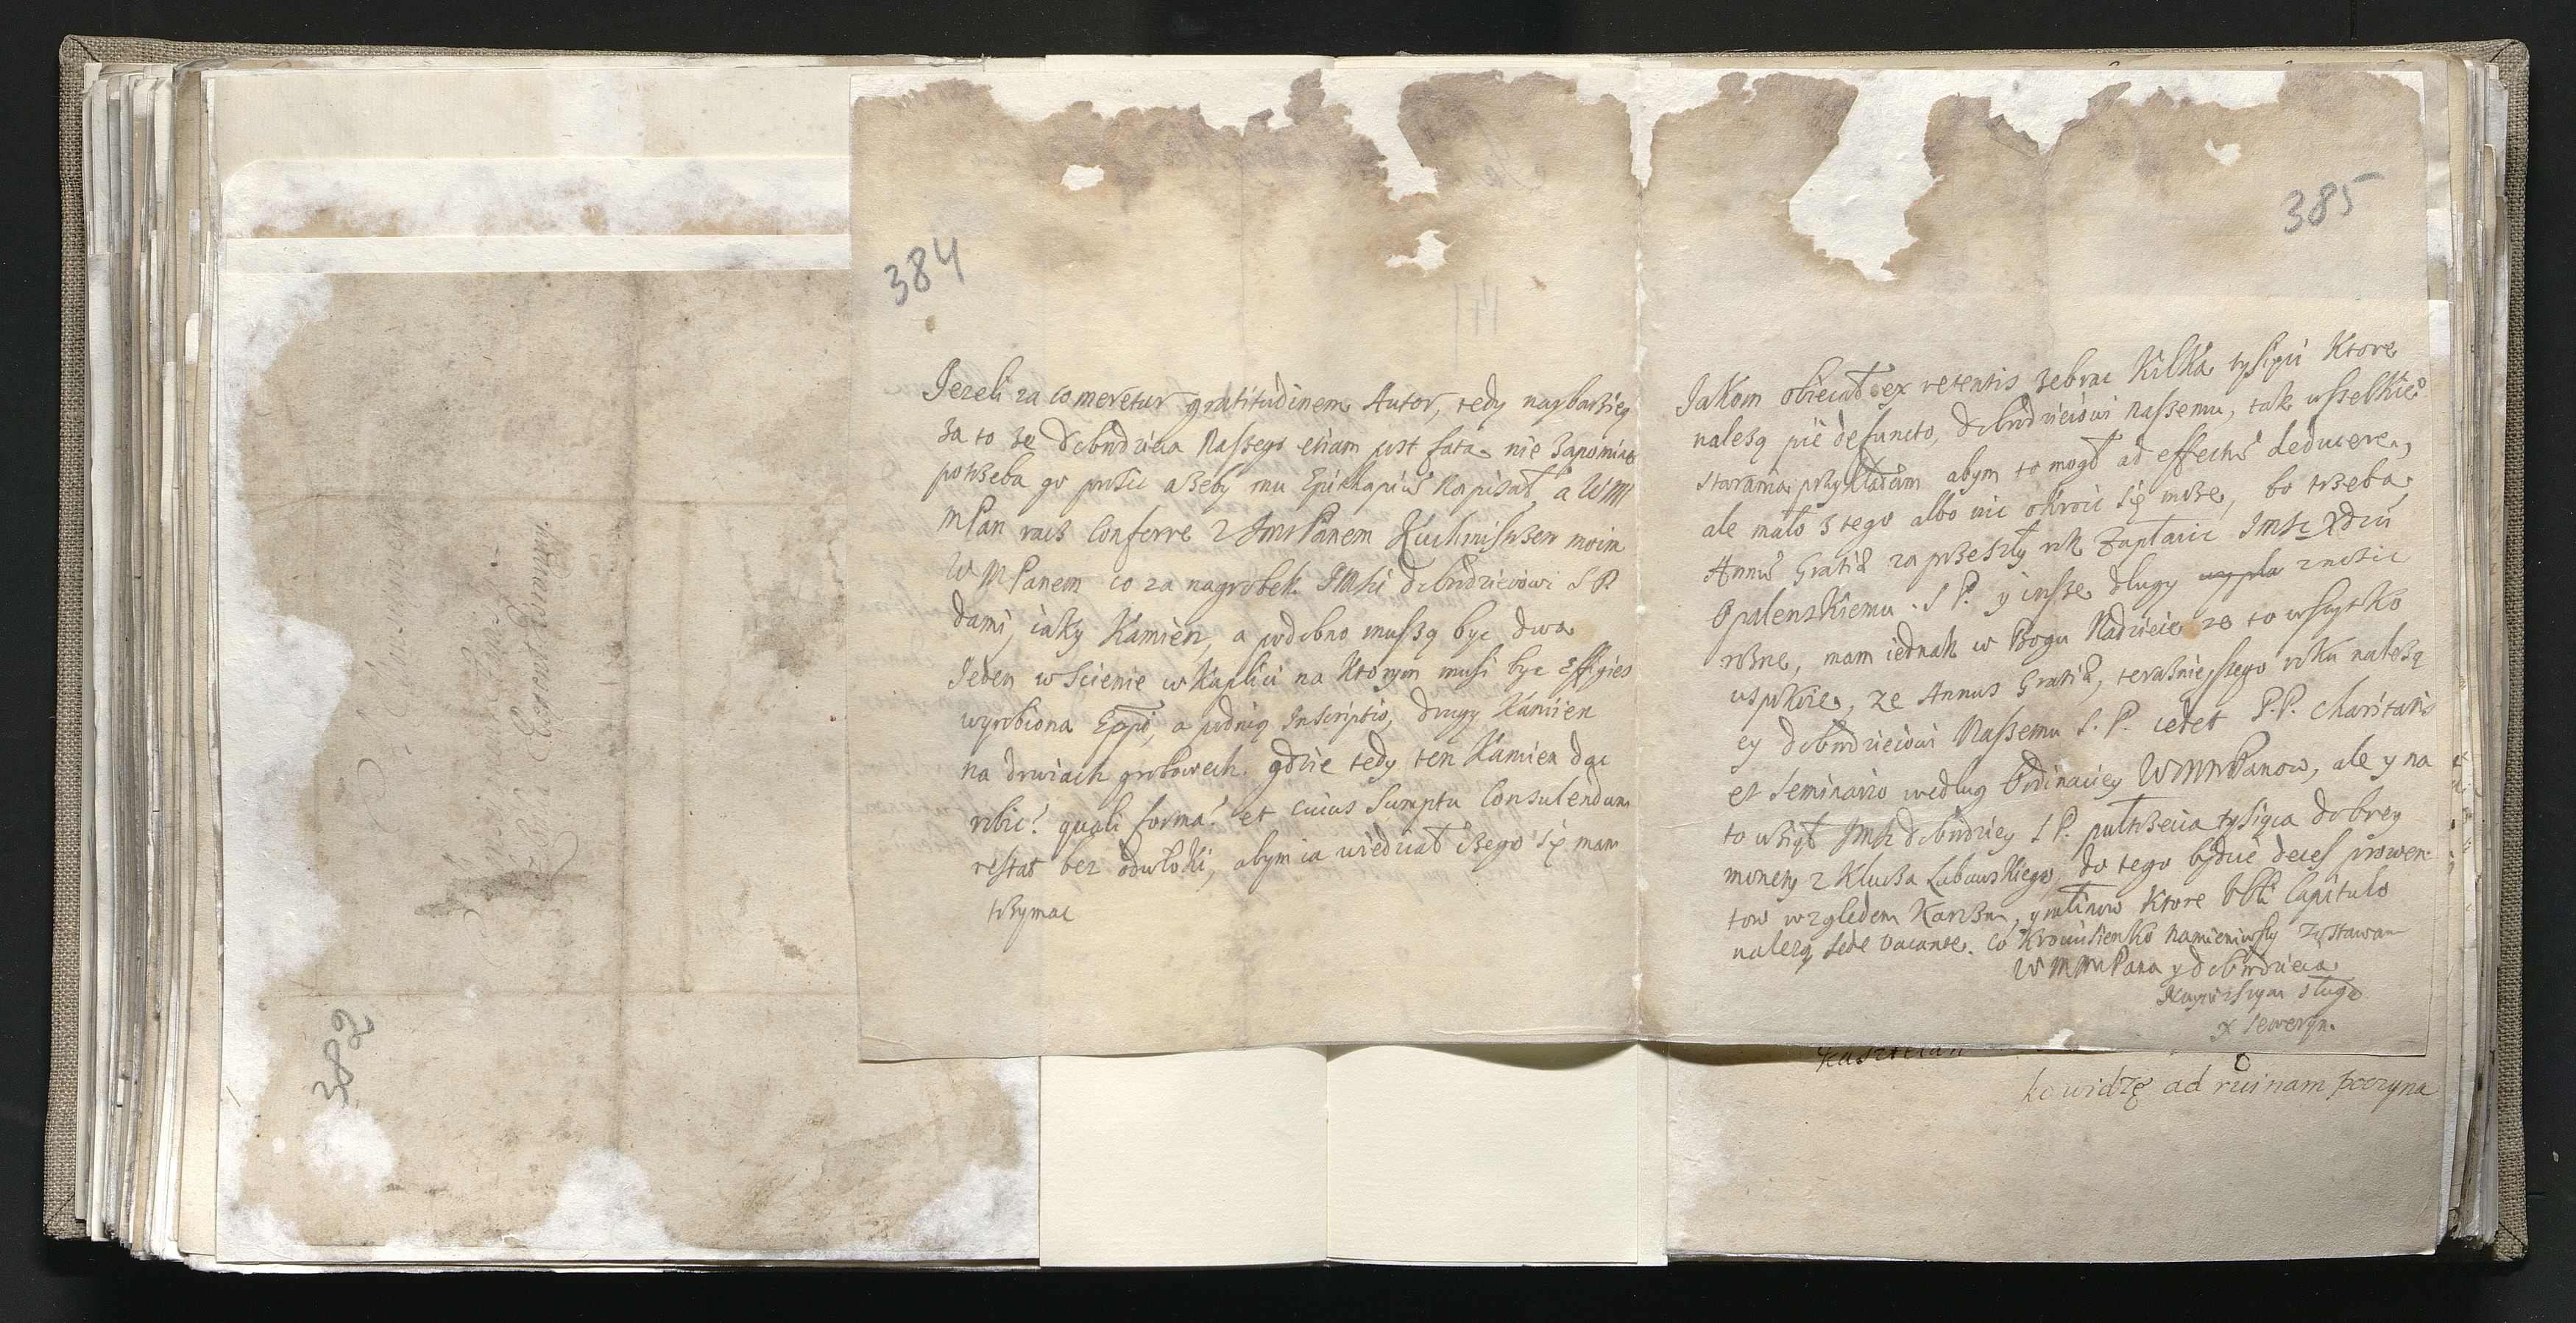 382
384
Jezeli za co meretur gratitudinem Autor, tedy naybarziey
za to ze dobrodzieia Naszego etiam post fata nie zapomina
potrzeba go prosic azeby mu Epithapiũ napisał, a WM
MPan racz Conferre z JmPanem Kuchmistrzem moim
WMPanem co za nagrobek JMsci dobrodzieiowi S P
dami, iaky Kamien, a podobno muszą byc dwa
Jeden w scienie w Kaplici na Ktorym musi byc Effigies
wyrobiona Eppi, a podnią Inscriptio, drugy Kamien
na drwiach grobowech. gdzie tedy ten Kamien dac
robic? quali forma? et cuius sumptu Consulendum
restat bez odwłoki, abym ia wiedział czego się mam
trzymac
385
Jakom obiecał ex retentis zebrac Kilka tysięcy Ktore
należą pie defuncto, dobrodzieiowi naszemu, tak wszelkieo
starania przykładam abym to mogł ad effectũ deducere,
ale mało z tego albo nic okroic się może, bo trzeba
Annũ Gratiæ za przeszły rok zapłacic JMsc Xdzu
Opalenskiemu. S P. y insze długy wypla znosic
rożne, mam iednak w Bogu Nadzieie ze to wszytko
uspokoie, ze Annus Gratiæ, teraznieyszego roku należą
cy dobrodzieiowi Naszemu S. P. cedet P.P. Charitatis
et Seminario według Ordinaciey WMMPanow, ale y na
to wziął Jmsc dobrodziey S P. pułtrzecia tysiąca dobrey
monety z Klucza Lubawskiego, do tego będzie deces prowen-
tow względem Karczm, y młinow Ktore Vbli Capitulo
należą sede vacante. Co Krociusienko namieniwszy zostawam
WMMMPana y dobrodzieia
Naynizszym sługą
X Seweryn.
Kasztelan
ko widzę ad ruinam poczyna